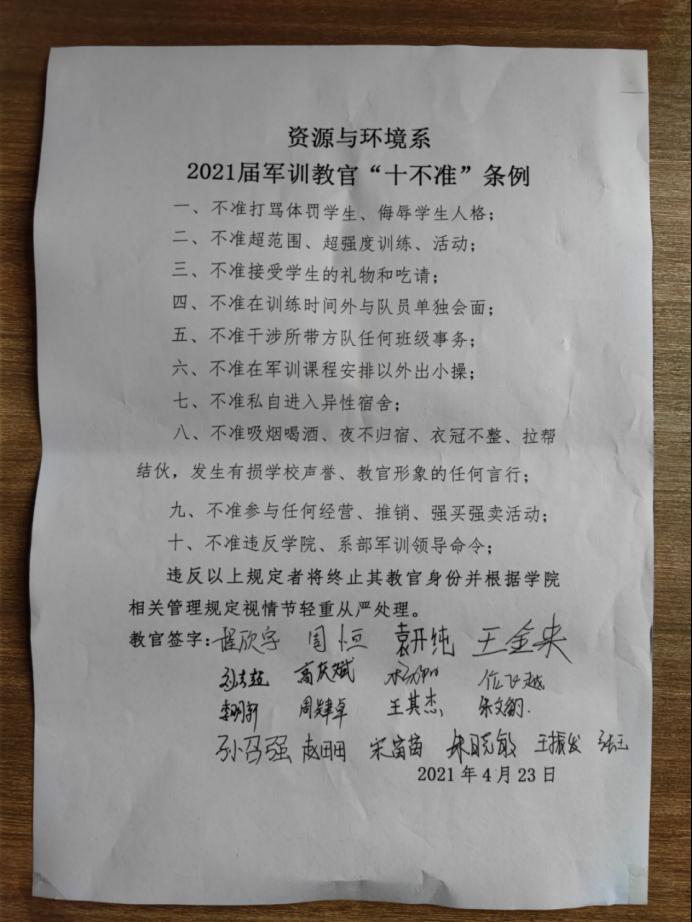 资源与环境系
2021届军训教官“十不准”条例
一、不准打骂体罚学生、侮辱学生人格；
二、不准超范围、超强度训练、活动；
三、不准接受学生的礼物和吃请；
四、不准在训练时间外与队员单独会面；
五、不准干涉所带方队任何班级事务；
六、不准在军训课程安排以外出小操；
七、不准私自进入异性宿舍；
八、不准吸烟喝酒、夜不归宿、衣冠不整、拉帮
结伙，发生有损学校声誉、教官形象的任何言行；
九、不准参与任何经营、推销、强买强卖活动；
十、不准违反学院、系部军训领导命令；
违反以上规定者将终止其教官身份并根据学院
相关管理规定视情节轻重从严处理。
教官签字：程欣宇 周恒 袁开纯 王金来
高庆斌
李明轩 周肄卓 王其杰
孙召强 赵田田 宋苗苗 朱晓敏 王振发
2021年4月23日